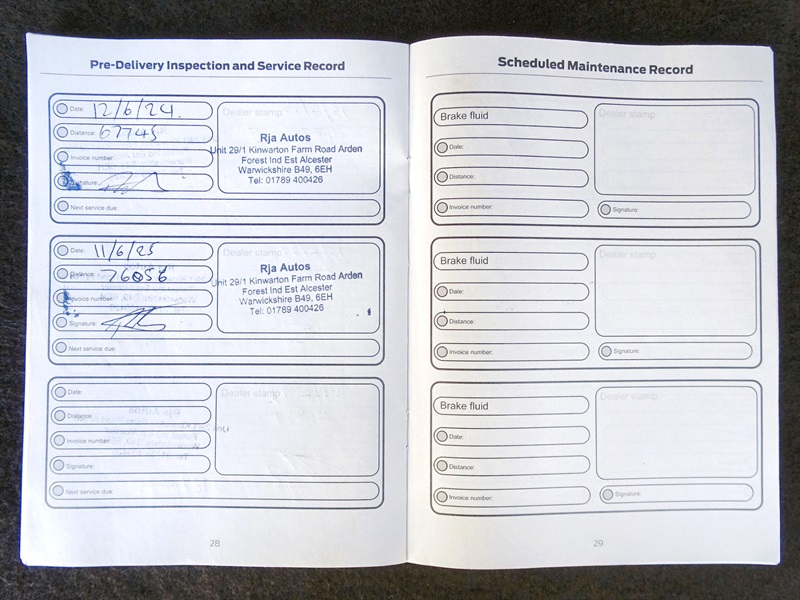 Pre-Delivery Inspection and Service Record
Date: 12/6/24.
Distance: 67745
Invoice number:
Signature:
Next service due:
Dealer stamp
Rja Autos
Unit 29/1 Kinwarton Farm Road Arden
Forest Ind Est Alcester
Warwickshire B49, 6EH
Tel: 01789 400426
Date: 11/6/25
Distance: 76056
Invoice number:
Signature:
Next service due:
Dealer stamp
Rja Autos
Unit 29/1 Kinwarton Farm Road Arden
Forest Ind Est Alcester
Warwickshire B49, 6EH
Tel: 01789 400426
Date:
Distance:
Invoice number:
Signature:
Next service due:
Dealer stamp
28
Scheduled Maintenance Record
Brake fluid
Date:
Distance:
Invoice number:
Dealer stamp
Signature:
Brake fluid
Date:
Distance:
Invoice number:
Dealer stamp
Signature:
Brake fluid
Date:
Distance:
Invoice number:
Dealer stamp
Signature:
29